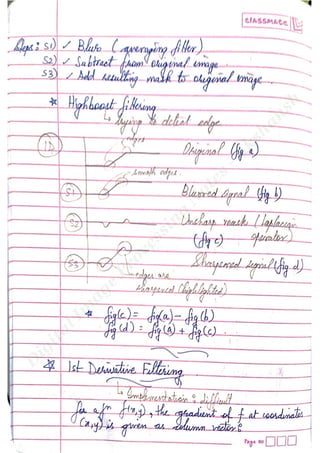 classmate
Steps: S1) ✓ Blur (averaging filter)
S2) ✓ Subtract from original image
S3) ✓ Add resulting mask to original image.
* Highboost filtering
↳ trying to detect edge
edges
1D Original (fig a)
smooth edges.
S1 Blurred signal (fig b)
S2 Unsharp mask (laplacian
(fig c) operator)
S3 Sharpened signal (fig d)
edges are
sharpened (highlighted)
* fig(c) = fig(a) - fig(b)
fig(d) = fig(a) + fig(c)
* 1st Derivative Filtering
↳ Implementation is difficult
for a fn f(x,y), the gradient of f at coordinates
(x,y) is given as column vector:
Page no